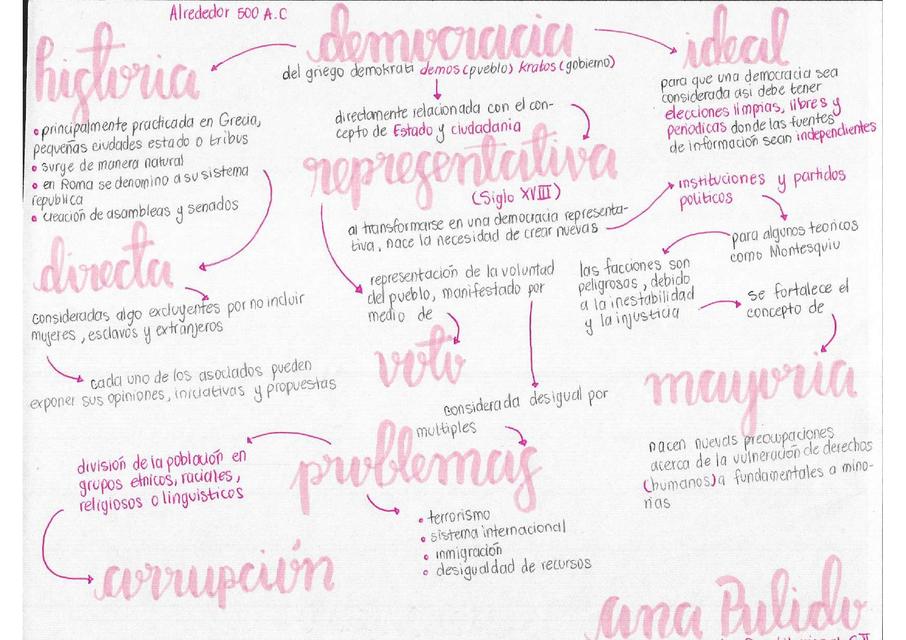 Alrededor 500 A.C
democracia
del griego demokrati demos (pueblo) kratos (gobierno)
directamente relacionada con el con-
cepto de Estado y ciudadania
historia
• principalmente practicada en Grecia,
pequeñas ciudades estado o tribus
• surge de manera natural
• en Roma se denomino a su sistema
republica
• creación de asambleas y senados
directa
consideradas algo excluyentes por no incluir
mujeres, esclavos y extranjeros
cada uno de los asociados pueden
exponer sus opiniones, iniciativas y propuestas
ideal
para que una democracia sea
considerada asi debe tener
elecciones limpias, libres y
periodicas donde las fuentes
de información sean independientes
representativa
(Siglo XVIII)
al transformarse en una democracia representa-
tiva, nace la necesidad de crear nuevas
instituciones y partidos
politicos
para algunos teoricos
como Montesquiu
las facciones son
peligrosas, debido
a la inestabilidad
y la injusticia
se fortalece el
concepto de
mayoria
nacen nuevas preocupaciones
acerca de la vulneración de derechos
(humanos) a fundamentales a mino-
rias
representación de la voluntad
del pueblo, manifestado por
medio de
voto
considerada desigual por
multiples
problemas
• terrorismo
• sistema internacional
• inmigración
• desigualdad de recursos
división de la población en
grupos etnicos, raciales,
religiosos o linguisticos
corrupción
ana Pulido